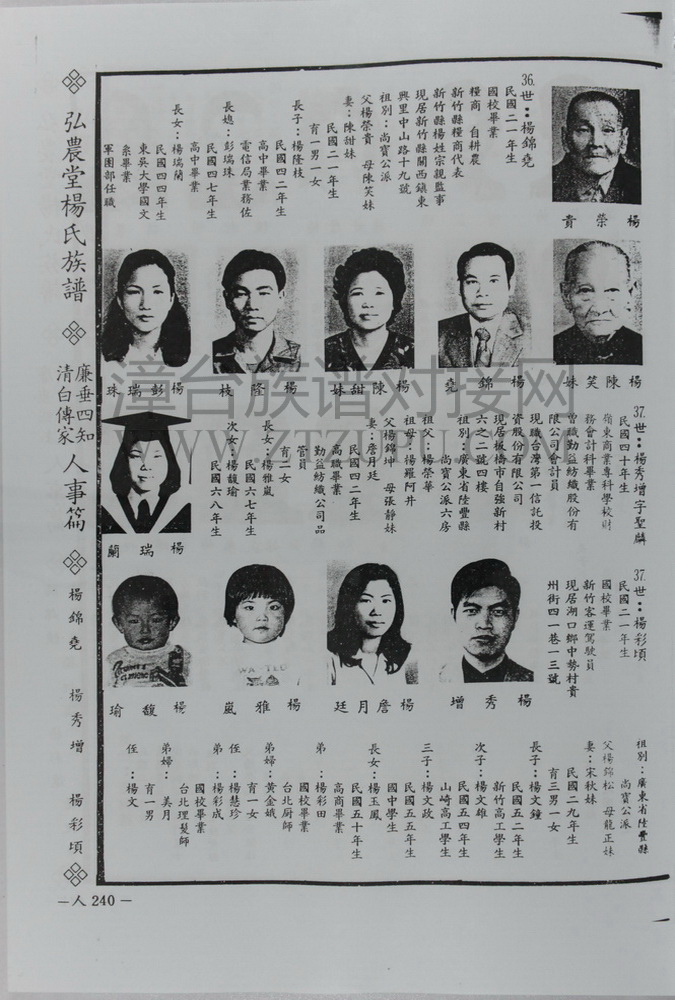 弘農堂楊氏族譜
廉垂四知
清白傳家
人事篇
楊錦堯
楊秀增
楊彩頃
36.世：楊錦堯
民國二一年生
國校畢業
糧商 自耕農
新竹縣糧商代表
新竹縣楊姓宗親監事
現居新竹縣關西鎮東
興里中山路十九號
祖別：尚賓公派
父楊榮貴 母陳笑妹
妻：陳甜妹
民國二一年生
育一男一女
長子：楊隆枝
民國四二年生
高中畢業
電信局業務佐
長媳：彭瑞珠
民國四七年生
高中畢業
長女：楊瑞蘭
民國四四年生
東吳大學國文
系畢業
軍團部任職
貴榮楊
珠瑞彭楊
枝隆楊
妹甜陳楊
堯錦楊
妹笑陳楊
蘭瑞楊
37.世：楊秀增字聖麟
民國四十年生
嶺東商業專科學校財
務會計科畢業
曾職勤益紡織股份有
限公司會計員
現職台灣第一信託投
資股份有限公司
現居板橋市自強新村
六之二號四樓
祖別：廣東省陸豐縣
尚賓公派六房
祖父：楊榮華
祖母：楊羅阿井
父楊錦坤 母張靜妹
妻：詹月廷
民國四二年生
高職畢業
勤益紡織公司品
管員
育二女
長女：楊雅嵐
民國六七年生
次女：楊馥瑜
民國六八年生
37.世：楊彩頃
民國二一年生
國校畢業
新竹客運駕駛員
現居湖口鄉中勢村貴
州街四一巷一三號
瑜馥楊
嵐雅楊
廷月詹楊
增秀楊
祖別：廣東省陸豐縣
尚賓公派
父楊錦松 母龍正妹
妻：宋秋妹
民國二九年生
育三男一女
長子：楊文鐘
民國五二年生
新竹高工學生
次子：楊文雄
民國五四年生
山崎高工學生
三子：楊文政
民國五五年生
國中學生
長女：楊玉鳳
民國五十年生
高商畢業
弟：楊彩田
國校畢業
台北廚師
弟婦：黃金娥
育一女
侄：楊慧珍
弟：楊彩成
國校畢業
台北理髮師
弟婦：美月
育一男
侄：楊文
—人240—
漳台族谱对接网
WWW.ZTZUPU.COM